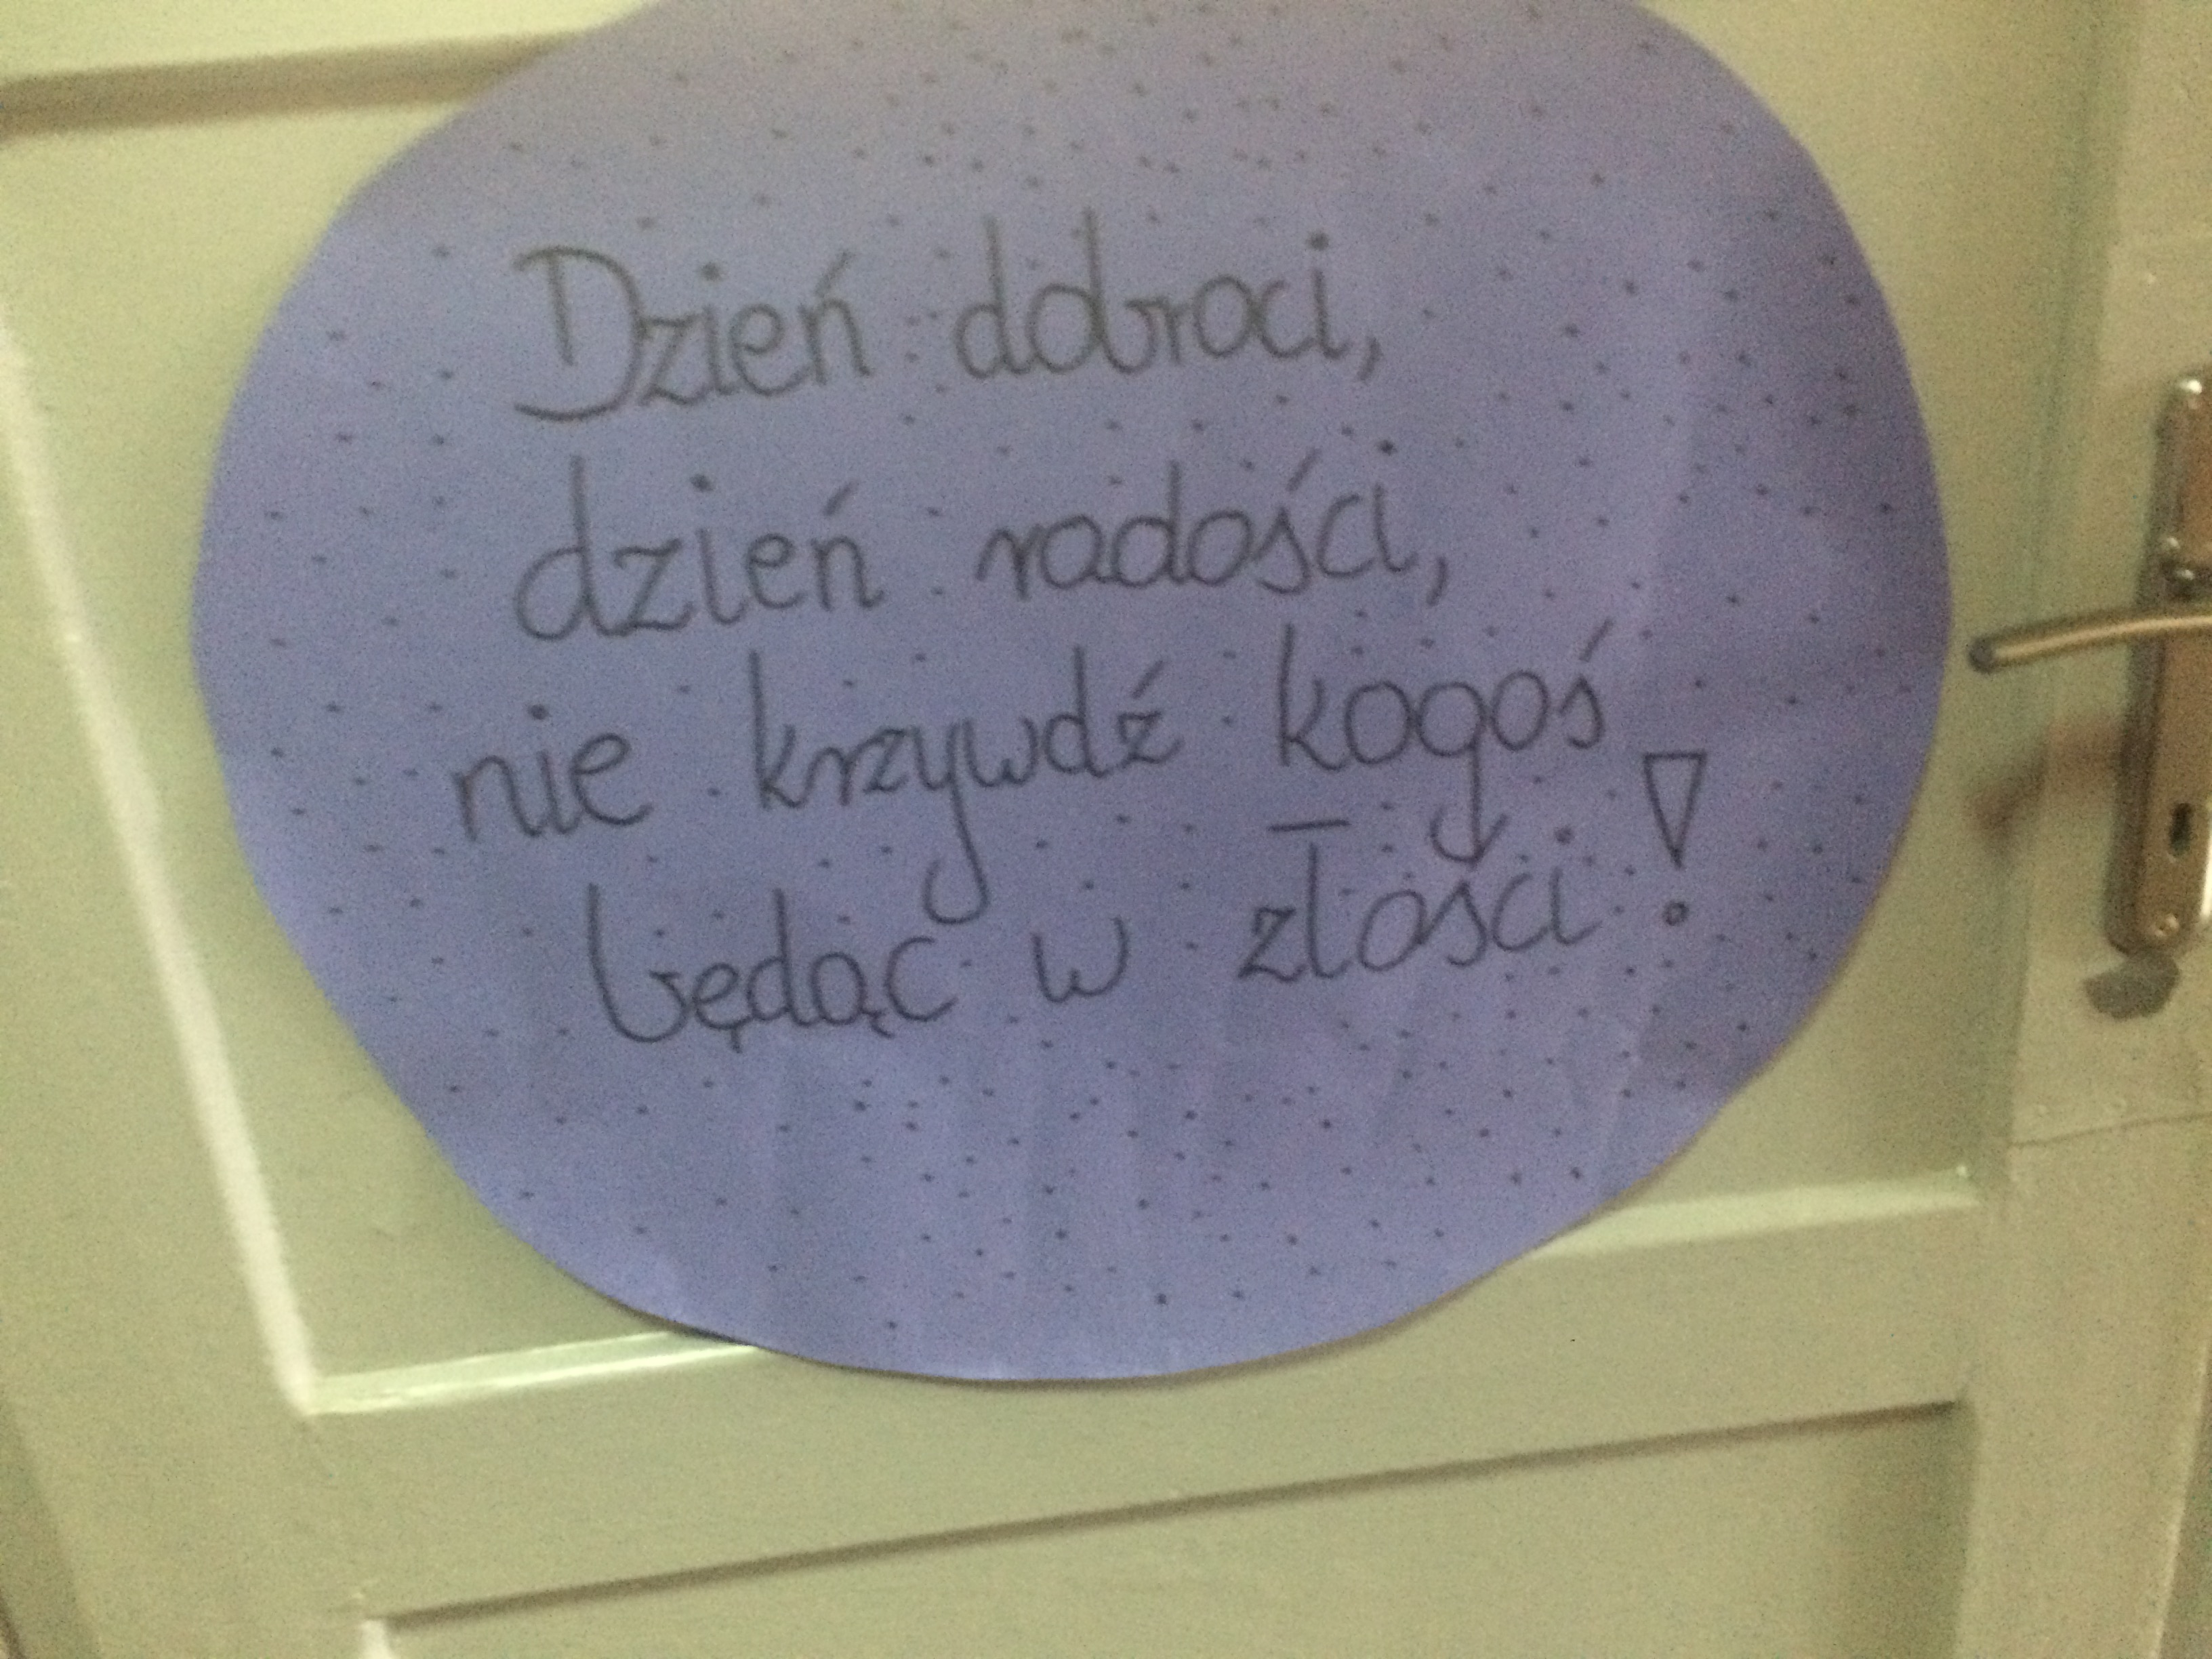 Dzień dobroci,
dzień radości,
nie krzywdź kogoś
będąc w złości!